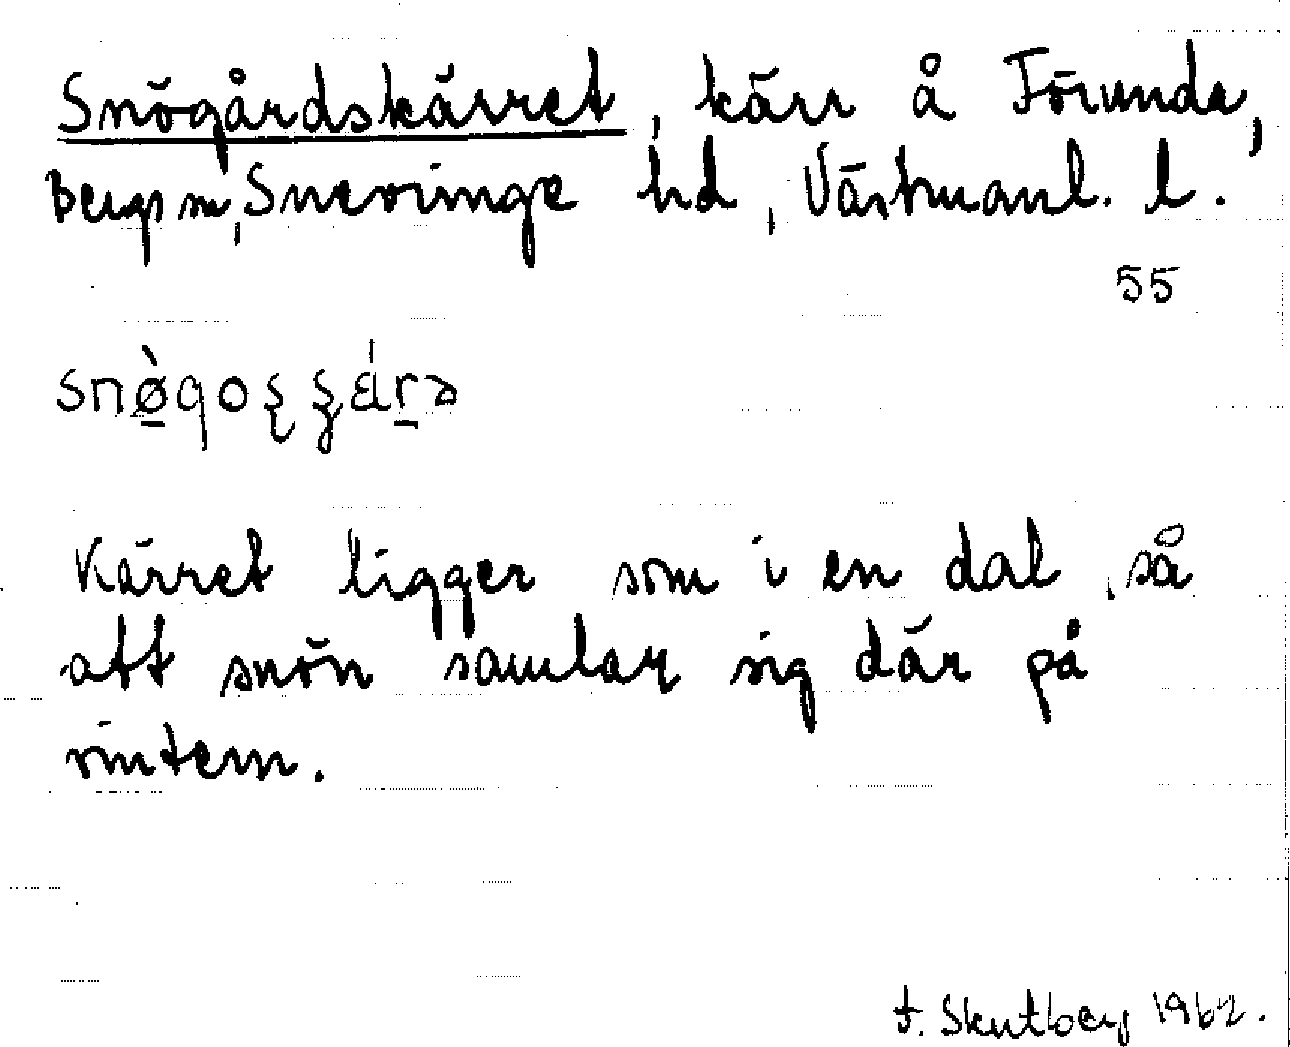 Snögårdskärret, kärr å Förunda,
Bergs sn, Snevringe hd, Västmanl. l.
55
Kärret ligger som i en dal, så
att snön samlar sig där på
vintern.
F. Skutberg 1962.